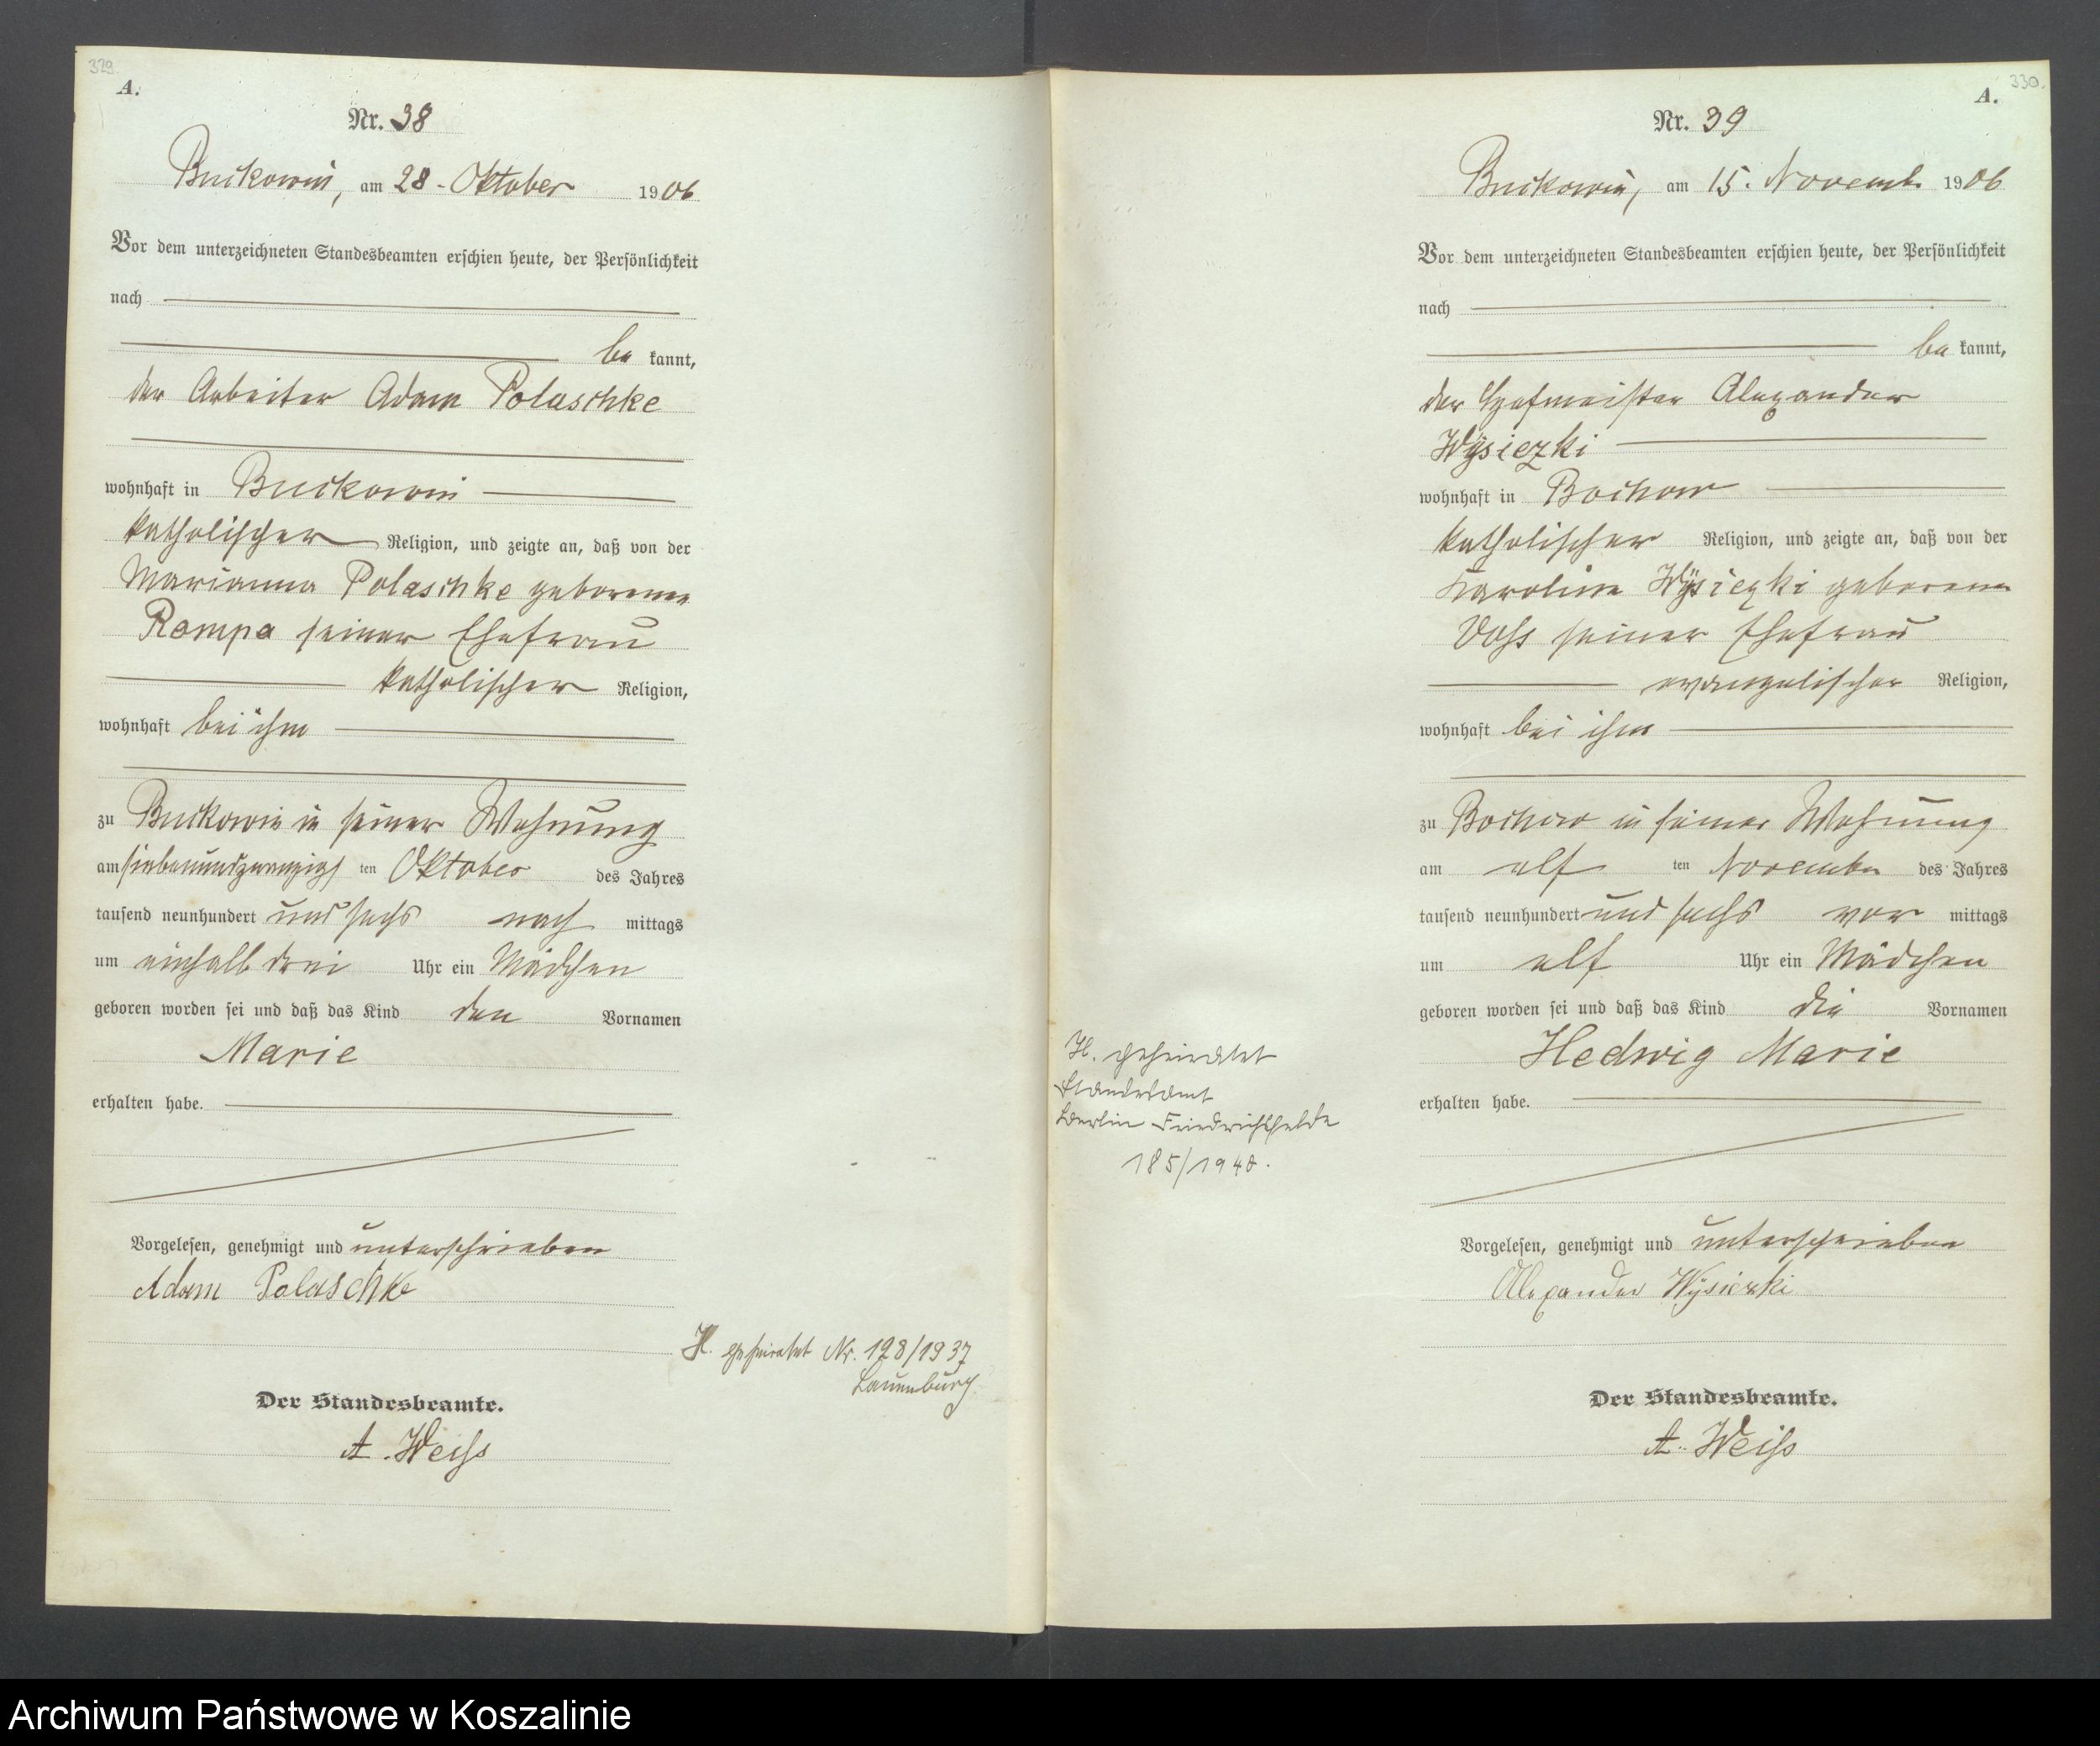 329.
A.
Nr. 38
Buckowin, am 28. Oktober 1906
Vor dem unterzeichneten Standesbeamten erschien heute, der Persönlichkeit
nach
be kannt,
der Arbeiter Adam Polaschke
wohnhaft in Buckowin
katholischer Religion, und zeigte an, daß von der
Marianna Polaschke geborenen
Rompa seiner Ehefrau
katholischer Religion,
wohnhaft bei ihm
zu Buckowin in seiner Wohnung
am siebenundzwanzigs ten Oktober des Jahres
tausend neunhundert und sechs nach mittags
um einhalb drei Uhr ein Mädchen
geboren worden sei und daß das Kind den Vornamen
Marie
erhalten habe.
Vorgelesen, genehmigt und unterschrieben
Adam Polaschke
H. geheiratet Nr. 128/1937
Lauenburg.
Der Standesbeamte.
A. Weiss
330.
A.
Nr. 39
Buckowin, am 15. Novemb. 1906
Vor dem unterzeichneten Standesbeamten erschien heute, der Persönlichkeit
nach
be kannt,
der Hofmeister Alexander
Wysiezki
wohnhaft in Bochow
katholischer Religion, und zeigte an, daß von der
Karoline Wysiezki geborenen
Voss seiner Ehefrau
evangelischer Religion,
wohnhaft bei ihm
zu Bochow in seiner Wohnung
am elf ten November des Jahres
tausend neunhundert und sechs vor mittags
um elf Uhr ein Mädchen
geboren worden sei und daß das Kind die Vornamen
Hedwig Marie
erhalten habe.
H. geheiratet
Standesamt
Berlin Friedrichsfelde
185/1940.
Vorgelesen, genehmigt und unterschrieben
Alexander Wysiezki
Der Standesbeamte.
A. Weiss
Archiwum Państwowe w Koszalinie